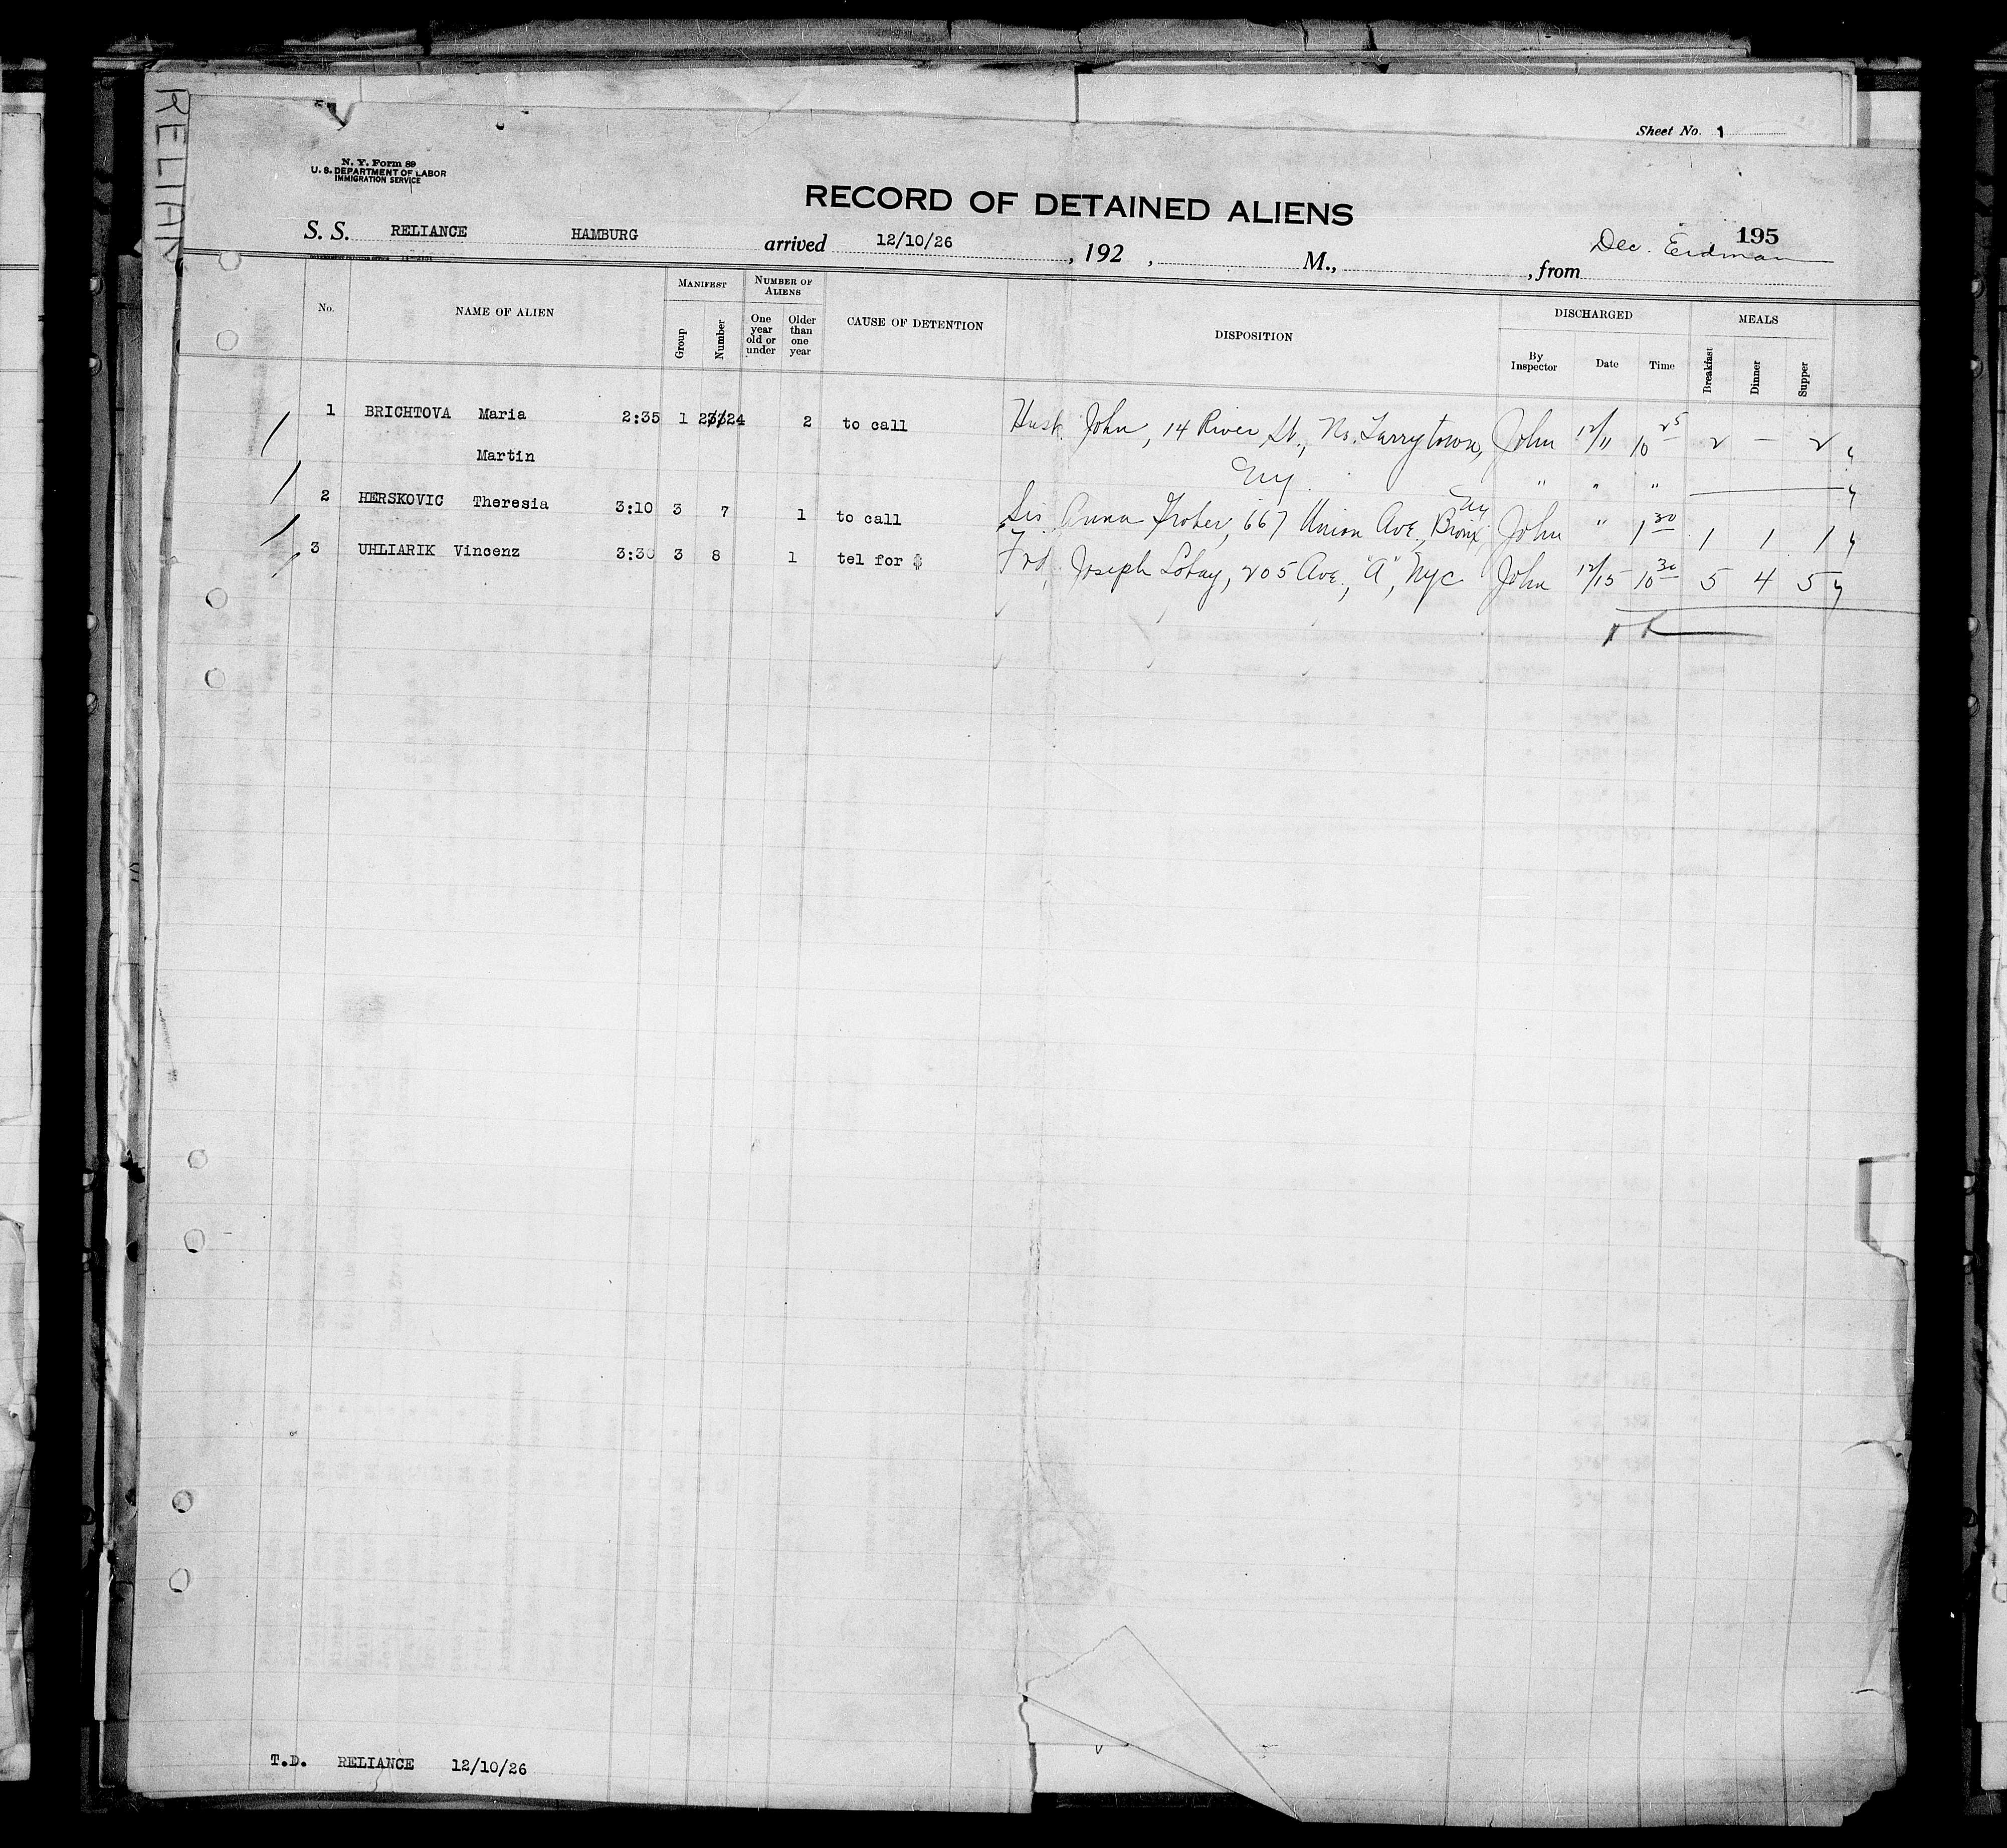 RELIAN
Sheet No. 1
N. Y. Form 89
U. S. DEPARTMENT OF LABOR
IMMIGRATION SERVICE
RECORD OF DETAINED ALIENS
195
S. S. RELIANCE HAMBURG arrived 12/10/26, 192 , M., , from Dec. Erdman
No.
NAME OF ALIEN
MANIFEST
Group
Number
NUMBER OF ALIENS
One year old or under
Older than one year
CAUSE OF DETENTION
DISPOSITION
DISCHARGED
By Inspector
Date
Time
MEALS
Breakfast
Dinner
Supper
1 BRICHTOVA Maria 2:35 1 23/24 2 to call Husb. John, 14 River St., No. Tarrytown, John 12/11 10 25 2 — 2
Martin Ny " " "
2 HERSKOVIC Theresia 3:10 3 7 1 to call Sis Anna 667 Union Ave., Bronx, Ny John " 1 30 1 1 1
3 UHLIARIK Vincenz 3:30 3 8 1 tel for $ Frd. Joseph Lobay, 205 Ave., "A", Nyc John 12/15 10 30 5 4 5
T.D. RELIANCE 12/10/26